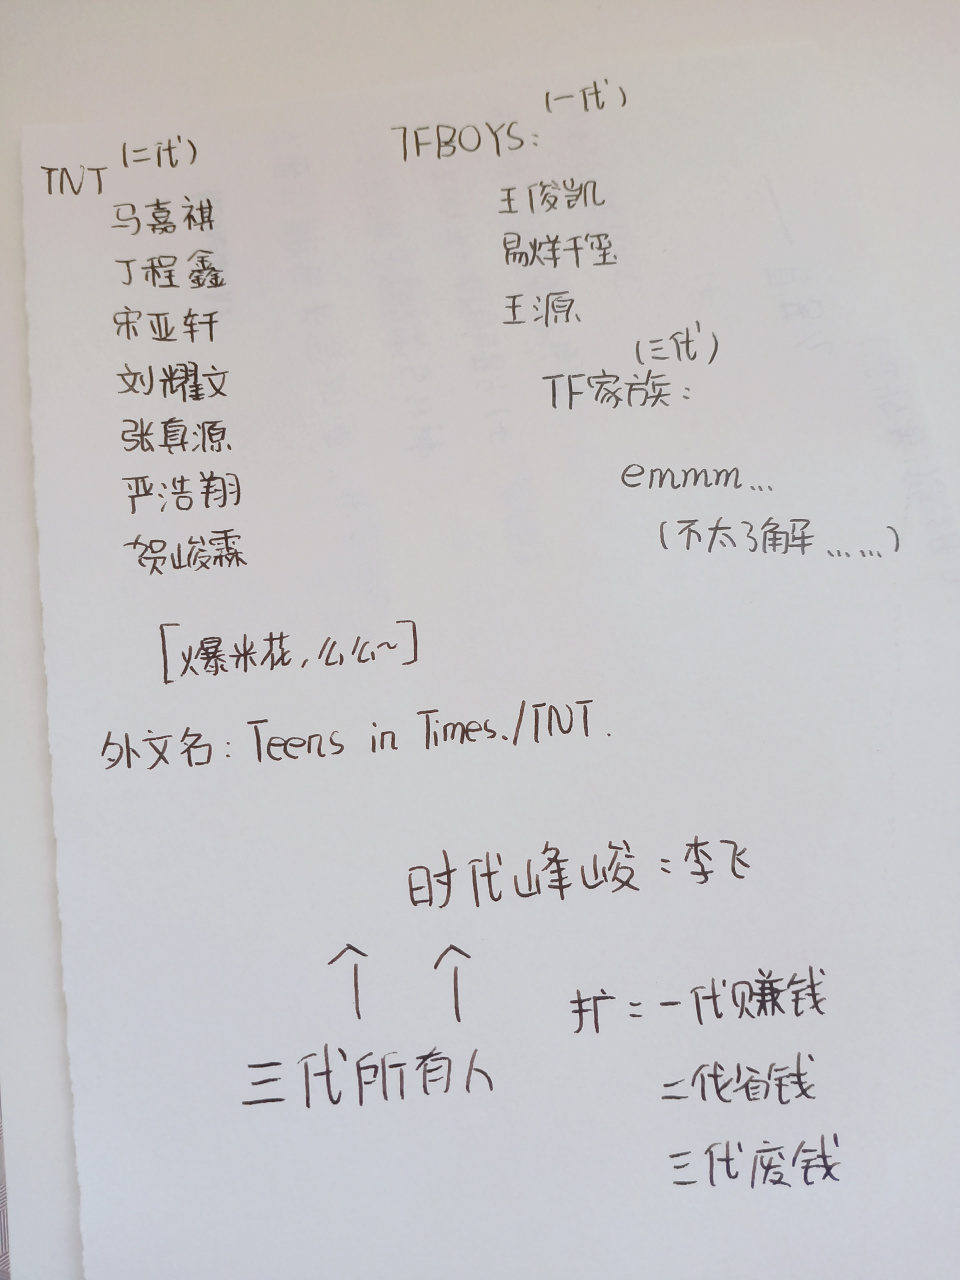 TNT (二代)
马嘉祺
丁程鑫
宋亚轩
刘耀文
张真源
严浩翔
贺峻霖
(一代)
TFBOYS:
王俊凯
易烊千玺
王源
(三代)
TF家族:
emmm...
(不太了解……)
[爆米花,么么~]
外文名: Teens in Times./TNT.
时代峰峻:李飞
↑ ↑
三代所有人
扩:一代赚钱
二代省钱
三代废钱